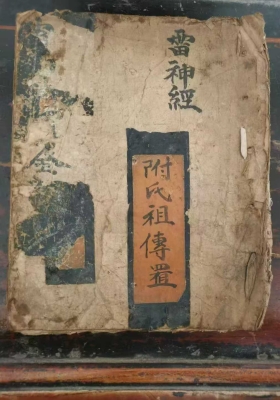 雷神經
附氏祖傳置
全